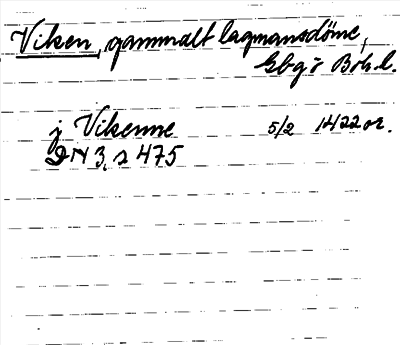 Viken, gammalt lagmansdöme,
Gbg o Boh. l.
j Vikenne 5/2 1422 or.
DN 3, s 475